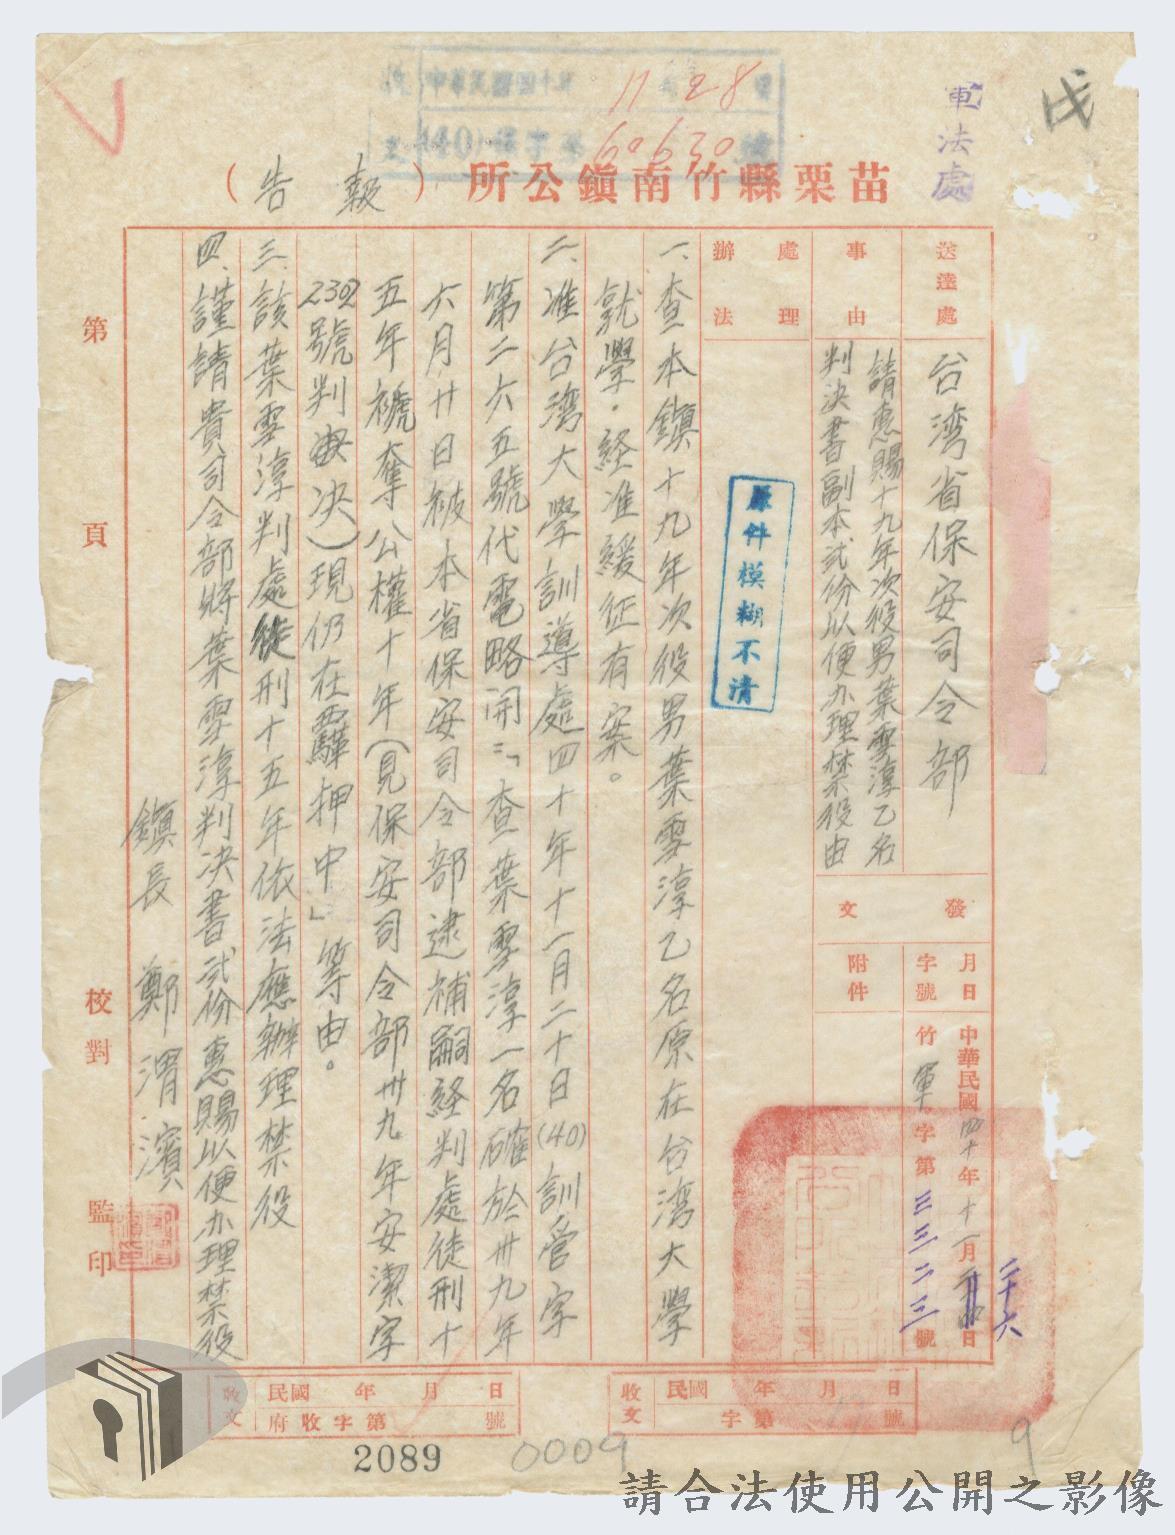 戊
軍法處
收 中華民國四十年11月28日
文 (40)安字第60630號
苗栗縣竹南鎮公所（報告）
送達處
台灣省保安司令部
事由
請惠賜十九年次役男葉雪淳乙名
判決書副本弍份以便办理禁役由
處理
辦法
原件模糊不清
發文
月日
字號
中華民國四十年十一月二十六日
竹軍字第三三二三號
附件
一、查本鎮十九年次役男葉雪淳乙名原在台湾大學
就學。経准緩征有案。
二、准台湾大學訓導處四十年十一月二十日(40)訓管字
第二六五號代電略開：「查葉雪淳一名確於卅九年
六月廿日被本省保安司令部逮補嗣経判處徒刑十
五年褫奪公權十年(見保安司令部卅九年安潔字
2392號判決)現仍在羈押中」等由。
三、該葉雪淳判處徒刑十五年依法應辦理禁役
四、謹請貴司令部將葉雪淳判决書弍份惠賜以便办理禁役
鎮長 鄭渭濱
第 頁
校對
監印
收文
民國 年 月 日
字第 號
收文
民國 年 月 日
府收字第 號
2089
0009
9
請合法使用公開之影像